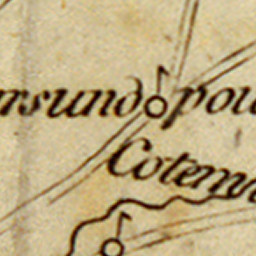 rsund pou
Cotem